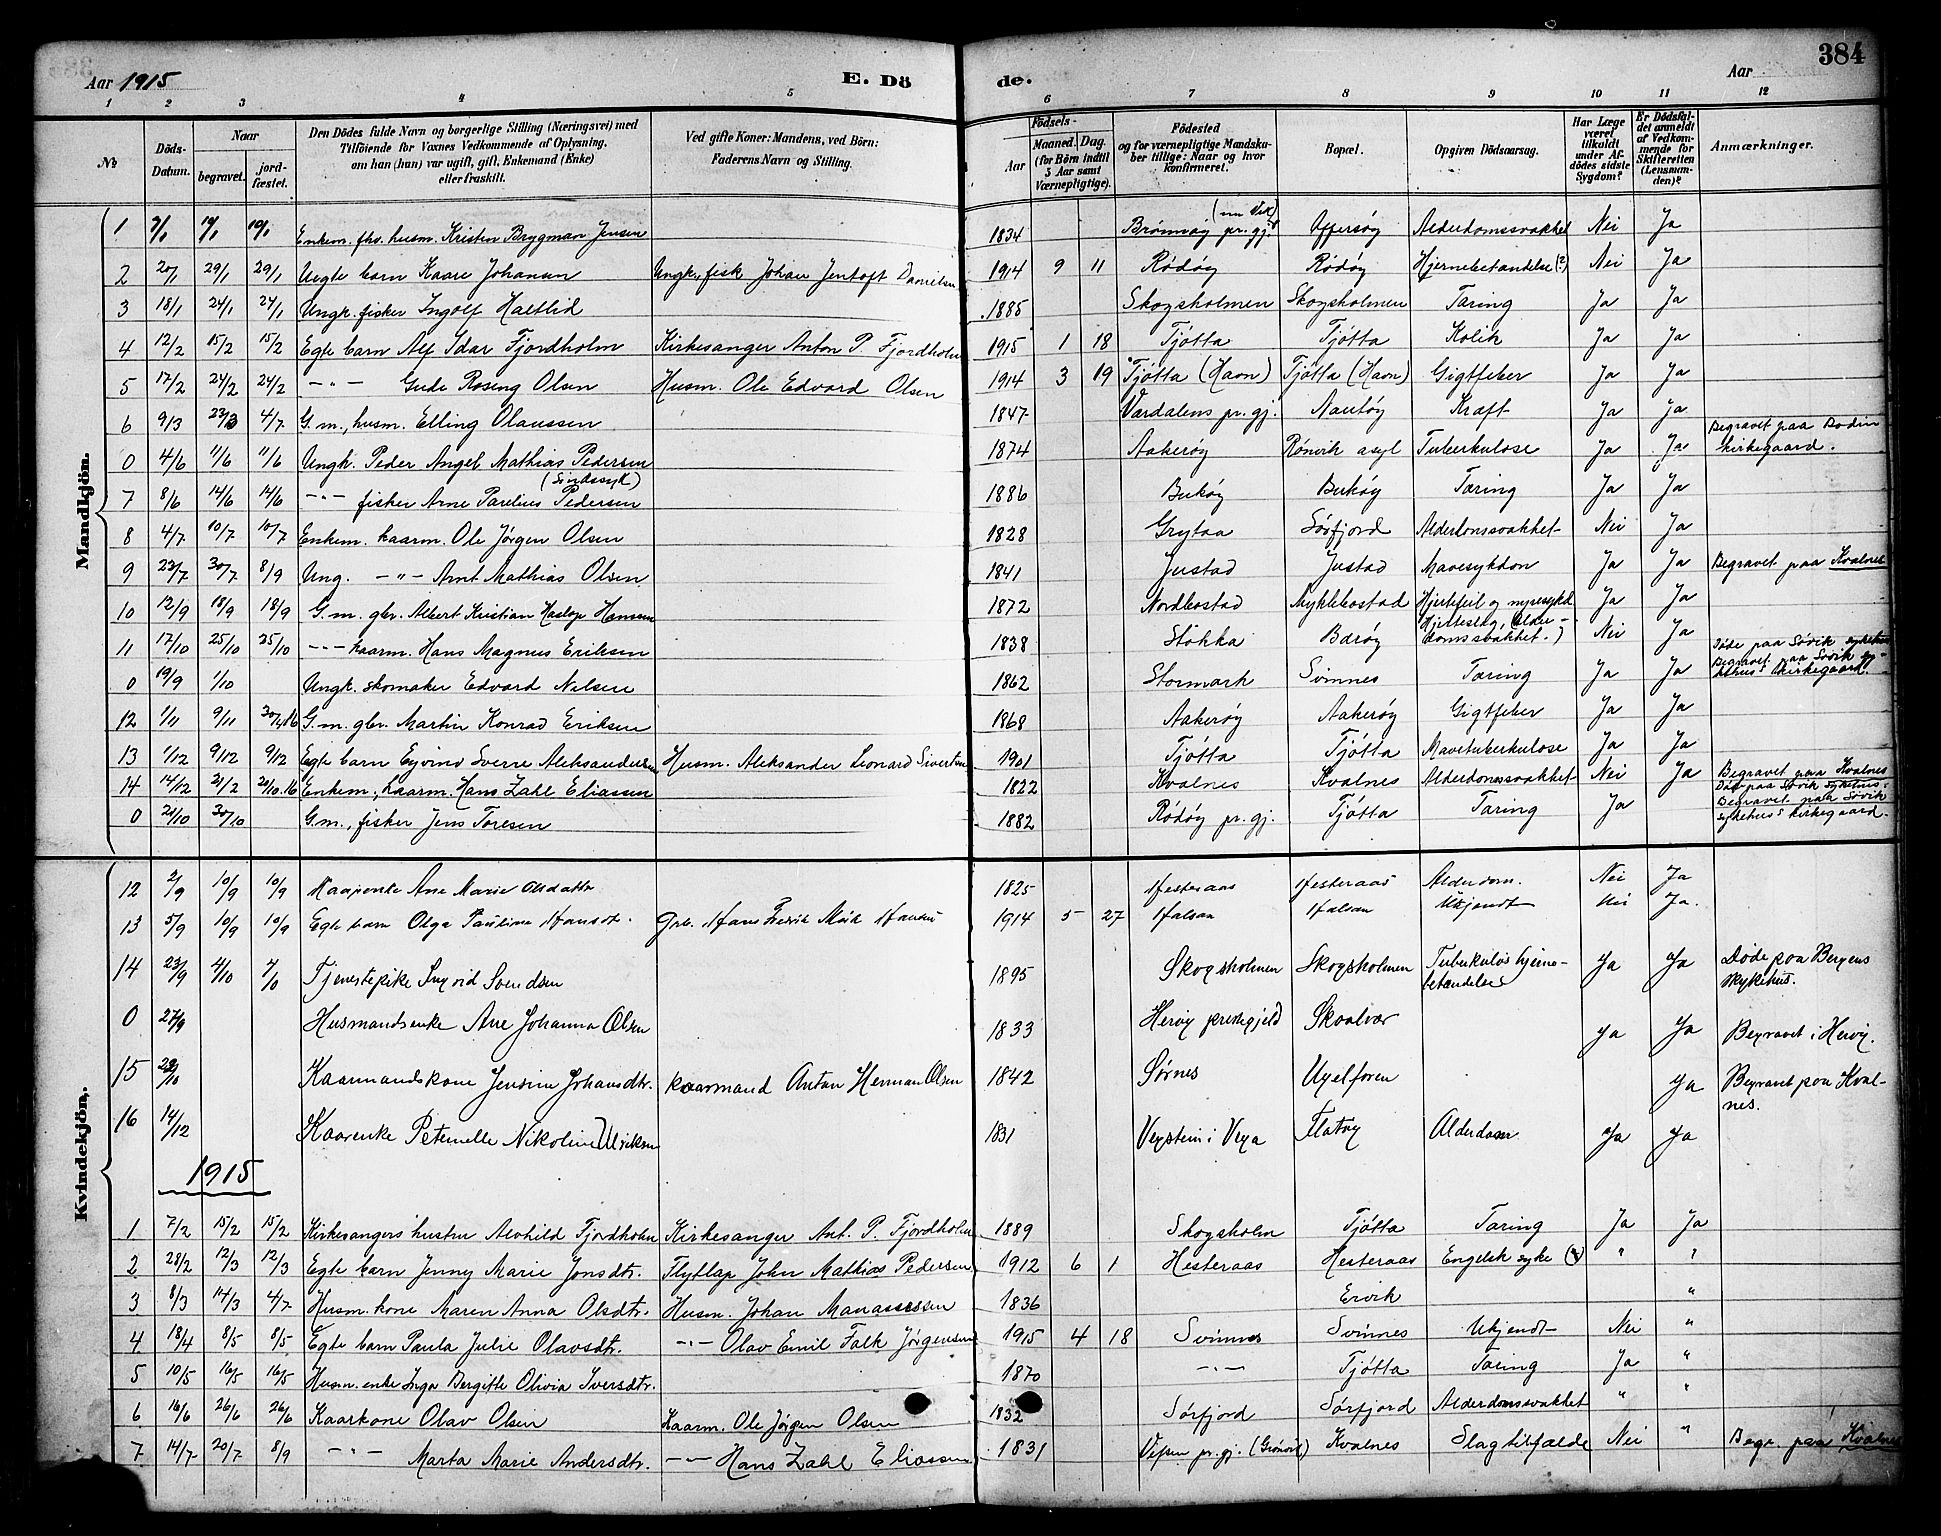 384
Aar 1915 E. Dö de. Aar
1 2 3 4 5 6 7 8 9 10 11 12
№ Döds-Datum. Naar begravet. jord-fæstet. Den Dödes fulde Navn og borgerlige Stilling (Næringsvei) med Tilföiende for Voxnes Vedkommende af Oplysning, om han (hun) var ugift, gift, Enkemand (Enke) eller fraskilt. Ved gifte Koner: Mandens, ved Börn: Faderens Navn og Stilling. Födsels- Aar Maaned. Dag. (for Börn indtil 5 Aar samt Værnepligtige). Födested og for værnepligtige Mandskaber tillige: Naar og hvor konfirmeret. Bopæl. Opgiven Dödsaarsag. Har Læge været tilkaldt under Afdödes sidste Sygdom? Er Dödsfaldet anmeldt af Vedkommende for Skifteretten (Lensmanden)? Anmærkninger.
Mandkjön.
1 Enkem. fhv. husm. Kristen Brygman Jensen 1834 Brønnøy pr. gj. Offersøy Alderdomssvakhet Nei Ja
2 20/1 29/1 29/1 Uegte barn Kaare Johansen Ungk. fisk Johan Jentoft Danielsen 1914 9 11 Rødøy Rødøy Hjernebetændelse (?) Nei Ja
3 18/1 24/1 24/1 Ungk. fisker Ingolf Haltlid 1885 Skogsholmen Skogsholmen Tæring Ja Ja
4 12/2 15/2 15/2 Egte barn Alf Idar Fjordholm Kirkesanger Anton P. Fjordholm 1915 1 18 Tjøtta Tjøtta Kolik Ja Ja
5 17/2 24/2 24/2 -"- Gude Rosing Olsen Husm. Ole Edvard Olsen 1914 3 19 Tjøtta (Havn) Tjøtta (Havn) Gigtfeber Ja Ja
6 9/3 23/3 4/7 G.m., husm. Elling Olaussen 1847 Værdalens pr. gj. Nautøy Kræft Ja Ja
0 4/6 11/6 11/6 Ungk. Peder Angel Mathias Pedersen (Sindssyk) 1874 Aakerøy Rønvik asyl Tuberkulose Ja Ja Begravet paa Bodin kirkegaard.
7 8/6 14/6 14/6 -"- fisker Arne Parelius Pedersen 1886 Bukøy Bukøy Tæring Ja Ja
8 4/7 10/7 10/7 Enkem. kaarm. Ole Jørgen Olsen 1828 Grytaa Sørfjord Alderdomssvakhet Nei Ja
9 23/7 30/7 8/9 Ung. -"- Arnt Mathias Olsen 1841 Justad Justad Mavesykdom Ja Ja Begravet paa Kvalnes
10 12/9 18/9 18/9 G.m. gbr. Albert Kristian Haslop Hansen 1872 Nordbostad Myklebostad Hjertefeil og nyresykd. Ja Ja
11 17/10 25/10 25/10 -"- kaarm. Hans Magnus Eriksen 1838 Stokka Barøy Hjerteslag, (alderdomssvakhet.) Nei Ja
0 19/9 1/10 Ungk. skomaker Edvard Nilsen 1862 Stormark Svinnes Tæring Ja Ja Døde paa Søvik sykehus Begravet paa Søvik sykehus' kirkegaard.
12 1/11 9/11 30/4 16 G.m. gbr. Martin Konrad Eriksen 1868 Aakerøy Aakerøy Gigtfeber Ja Ja
13 1/12 9/12 9/12 Egte barn Eyvind Sverre Aleksandersen Husm. Aleksander Leonard Sivertsen 1901 Tjøtta Tjøtta Mavetuberkulose Ja Ja
14 14/12 21/12 20/10.16 Enkem., kaarm. Hans Zahl Eliassen 1822 Kvalnes Kvalnes Alderdomssvakhet Nei Ja Begravet paa Kvalnes
0 21/10 30/10 G.m., fisker Jens Toresen 1882 Rødøy pr. gj. Tjøtta Tæring Ja Død paa Søvik sykehus. Begravet paa Søvik sykehus' kirkegaard.
Kvindekjön.
12 2/9 10/9 10/9 Ane Marie Olsdattr 1825 Hesteraas Hesteraas Alderdom. Nei Ja
13 5/9 10/9 10/9 Egte barn Olga Pauline Hansdt. Gbr. Hans Fredrik Hansen 1914 5 27 Ukjendt Nei Ja.
14 23/9 4/10 Tjenestepike Ingrid Svendsen 1895 Skogsholmen Skogsholmen Tuberkuløs hjernebetændelse Ja Ja Døde paa Bergens sykehus.
0 27/9 Husmandsenke Ane Johanna Olsen 1833 Herøy prestegjeld Skaalvær Ja Ja Begravet i Herøy.
15 Kaarmandskone Jensine Johansdtr. Kaarmand Anton Herman Olsen 1842 Sørnes Ugelforen Ja Begravet paa Kvalnes.
16 14/12 Kaarenke Peternelle Nikoline Ulriksen 1831 Vegstein i Vega Flatøy Alderdom Ja Ja
1915
1 7/2 15/2 15/2 Kirkesangers hustru Alvhild Fjordholm Kirkesanger Ant. P. Fjordholm 1889 Skogsholm Tjøtta Tæring Ja Ja
2 28/2 12/3 12/3 Egte barn Jenny Marie Jonsdtr. Flytlap John Mathias Pedersen 1912 6 1 Hesteraas Hesteraas Engelsk syke " "
3 8/3 14/3 4/7 Husm. kone Maren Anna Olsdtr. Husm. Johan Manassessen 1836 Ervik "
4 18/4 8/5 8/5 Egte barn Paula Julie Olavsdtr. -"- Olav Emil Falk Jørgensen 1915 4 18 Svinnes Svinnes Ukjendt Nei "
5 10/5 16/5 16/5 Husm. enke Inga Bergitte Olivia Iversdtr. 1870 -"- Tjøtta Tæring Ja "
6 16/6 26/6 26/6 Kaarkone Olav Olsen Kaarm. Ole Jørgen Olsen 1832 Sørfjord Sørfjord Alderdomssvakhet " "
7 14/7 20/7 8/9 -"- Marta Marie Andersdtr. -"- Hans Zahl Eliassen 1831 Vefsn pr. gj. Kvalnes Slagtilfælde Nei " Begr. paa Kvalnes